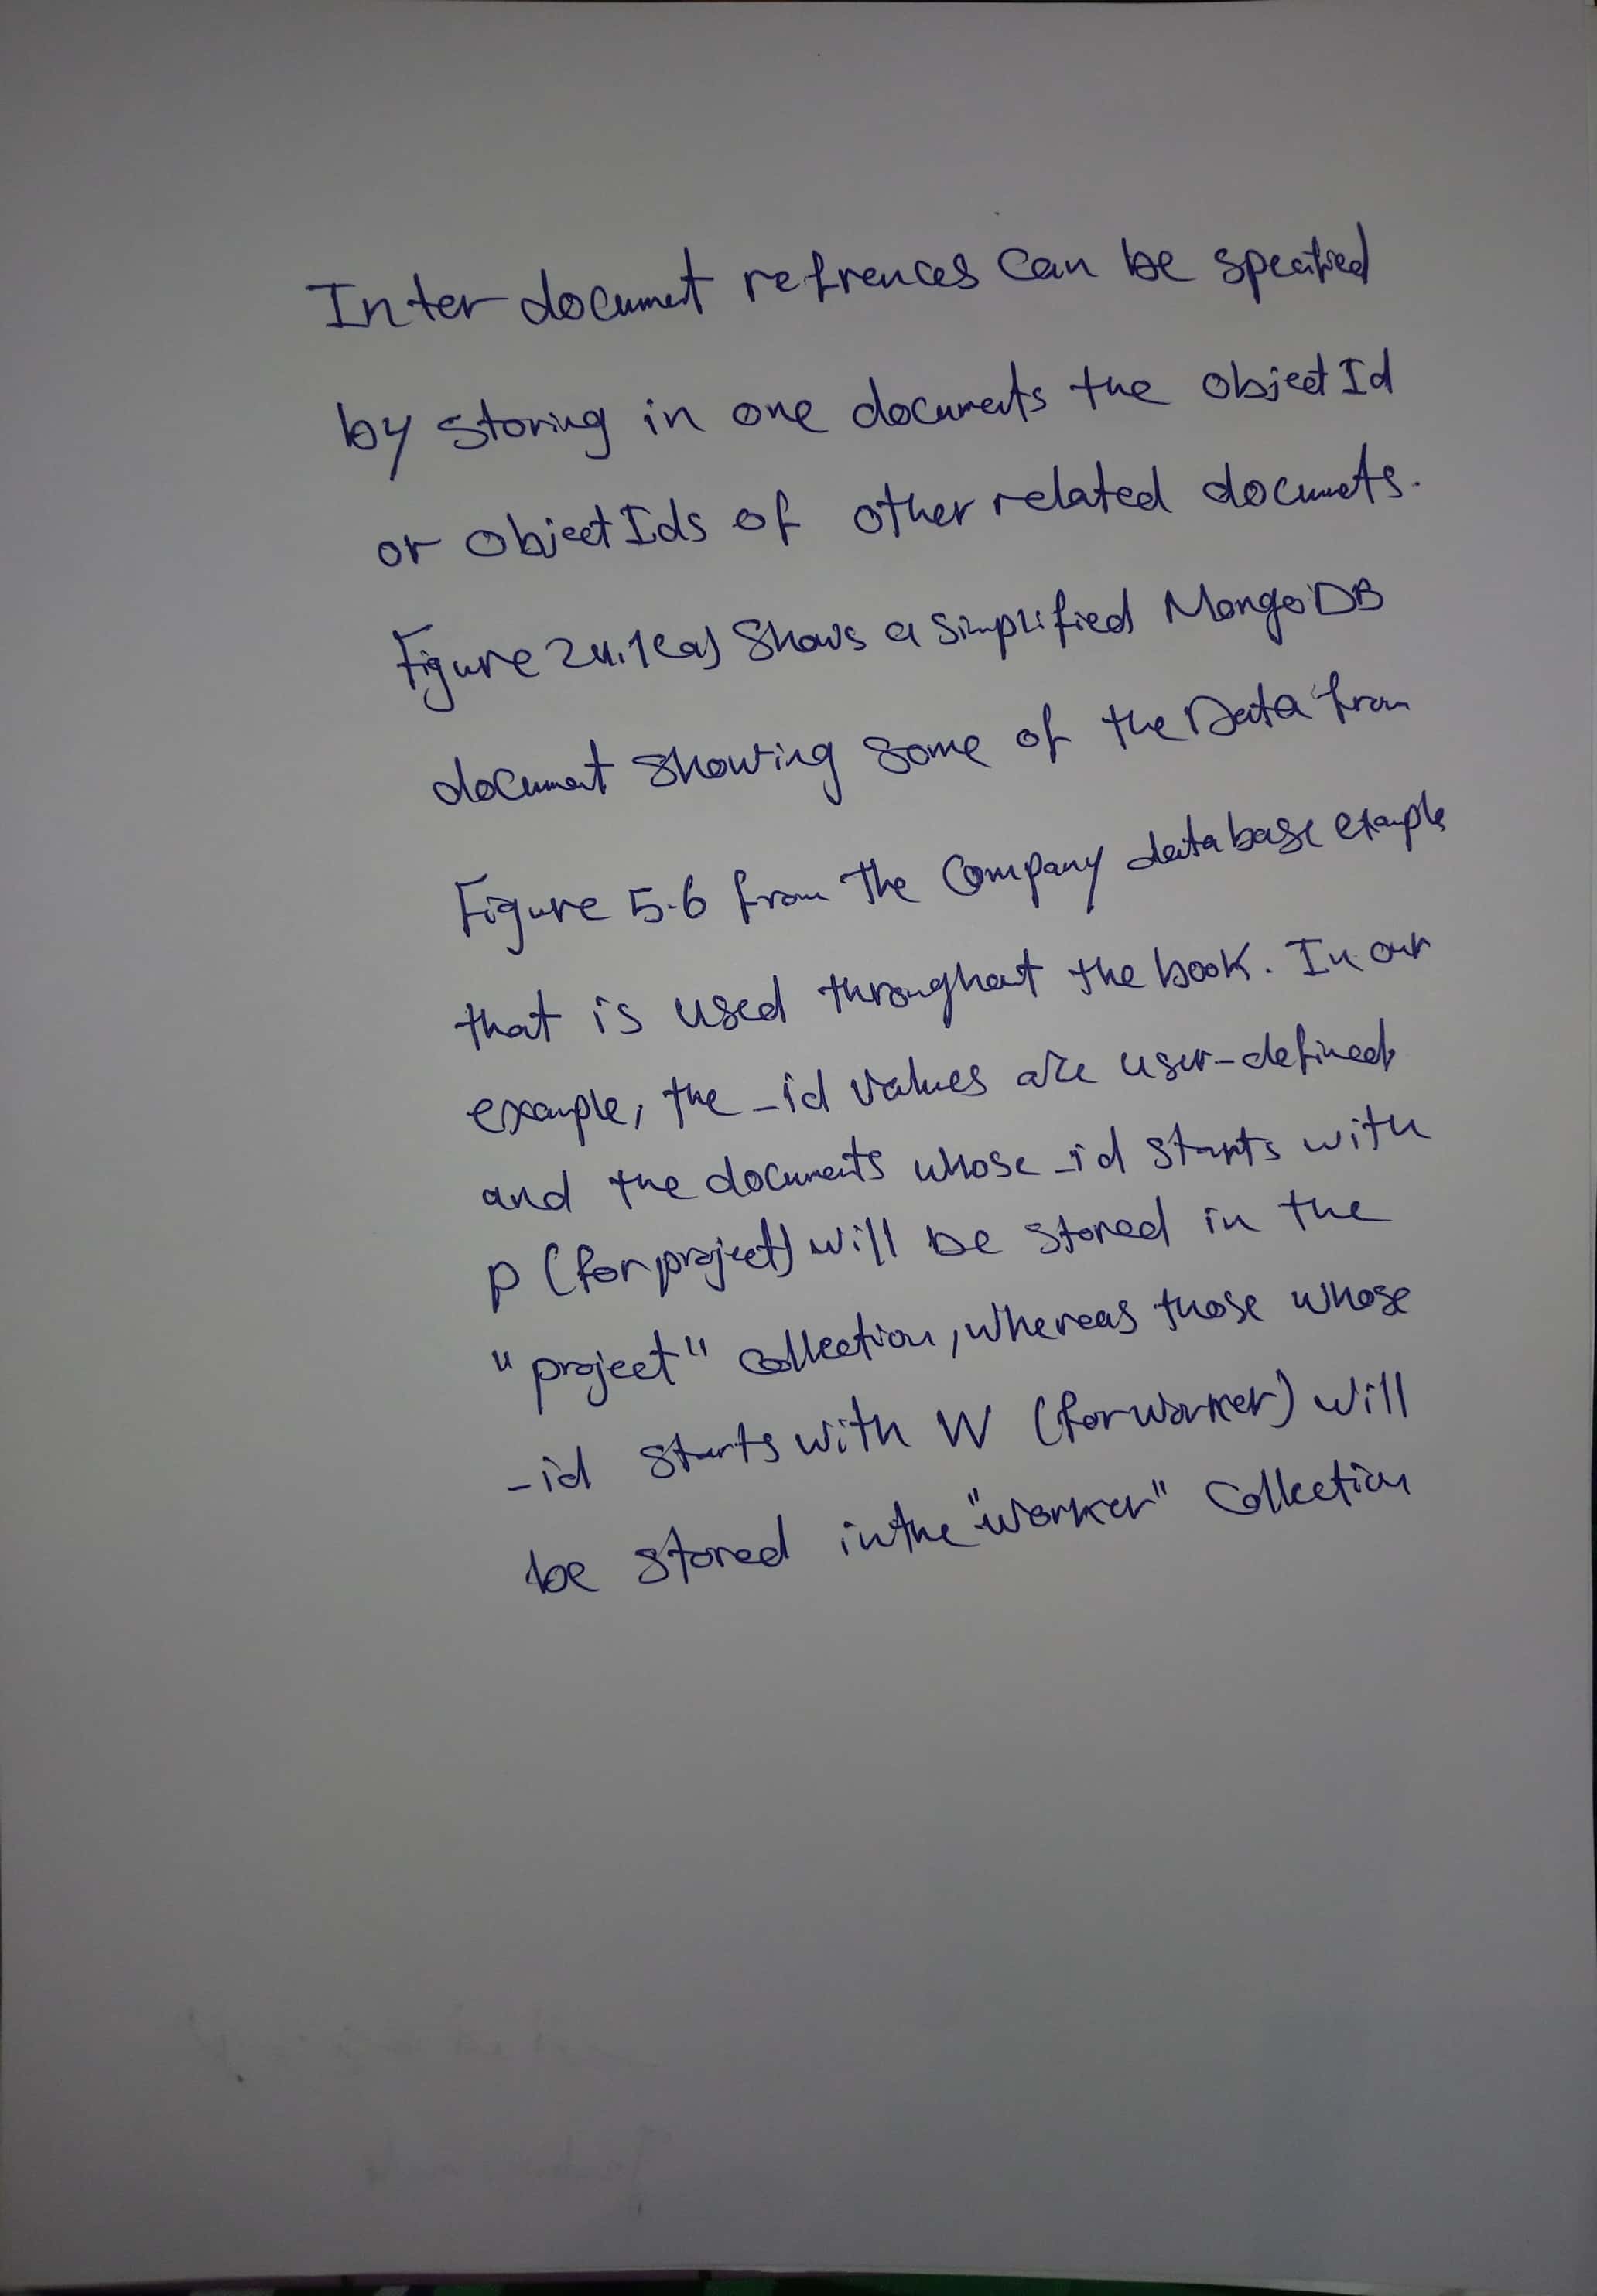 Inter document refrences can be specified
by storing in one documents the object Id
or object Ids of other related documets.
Figure 24.1(a) Shows a simplified MongoDB
document showing some of the Data from
Figure 5.6 from the Company database example
that is used throughout the book. In our
example, the _id values are user-defined
and the documents whose _id starts with
P (for project) will be stored in the
"project" collection, whereas those whose
_id starts with W (for worker) will
be stored in the "worker" Collection